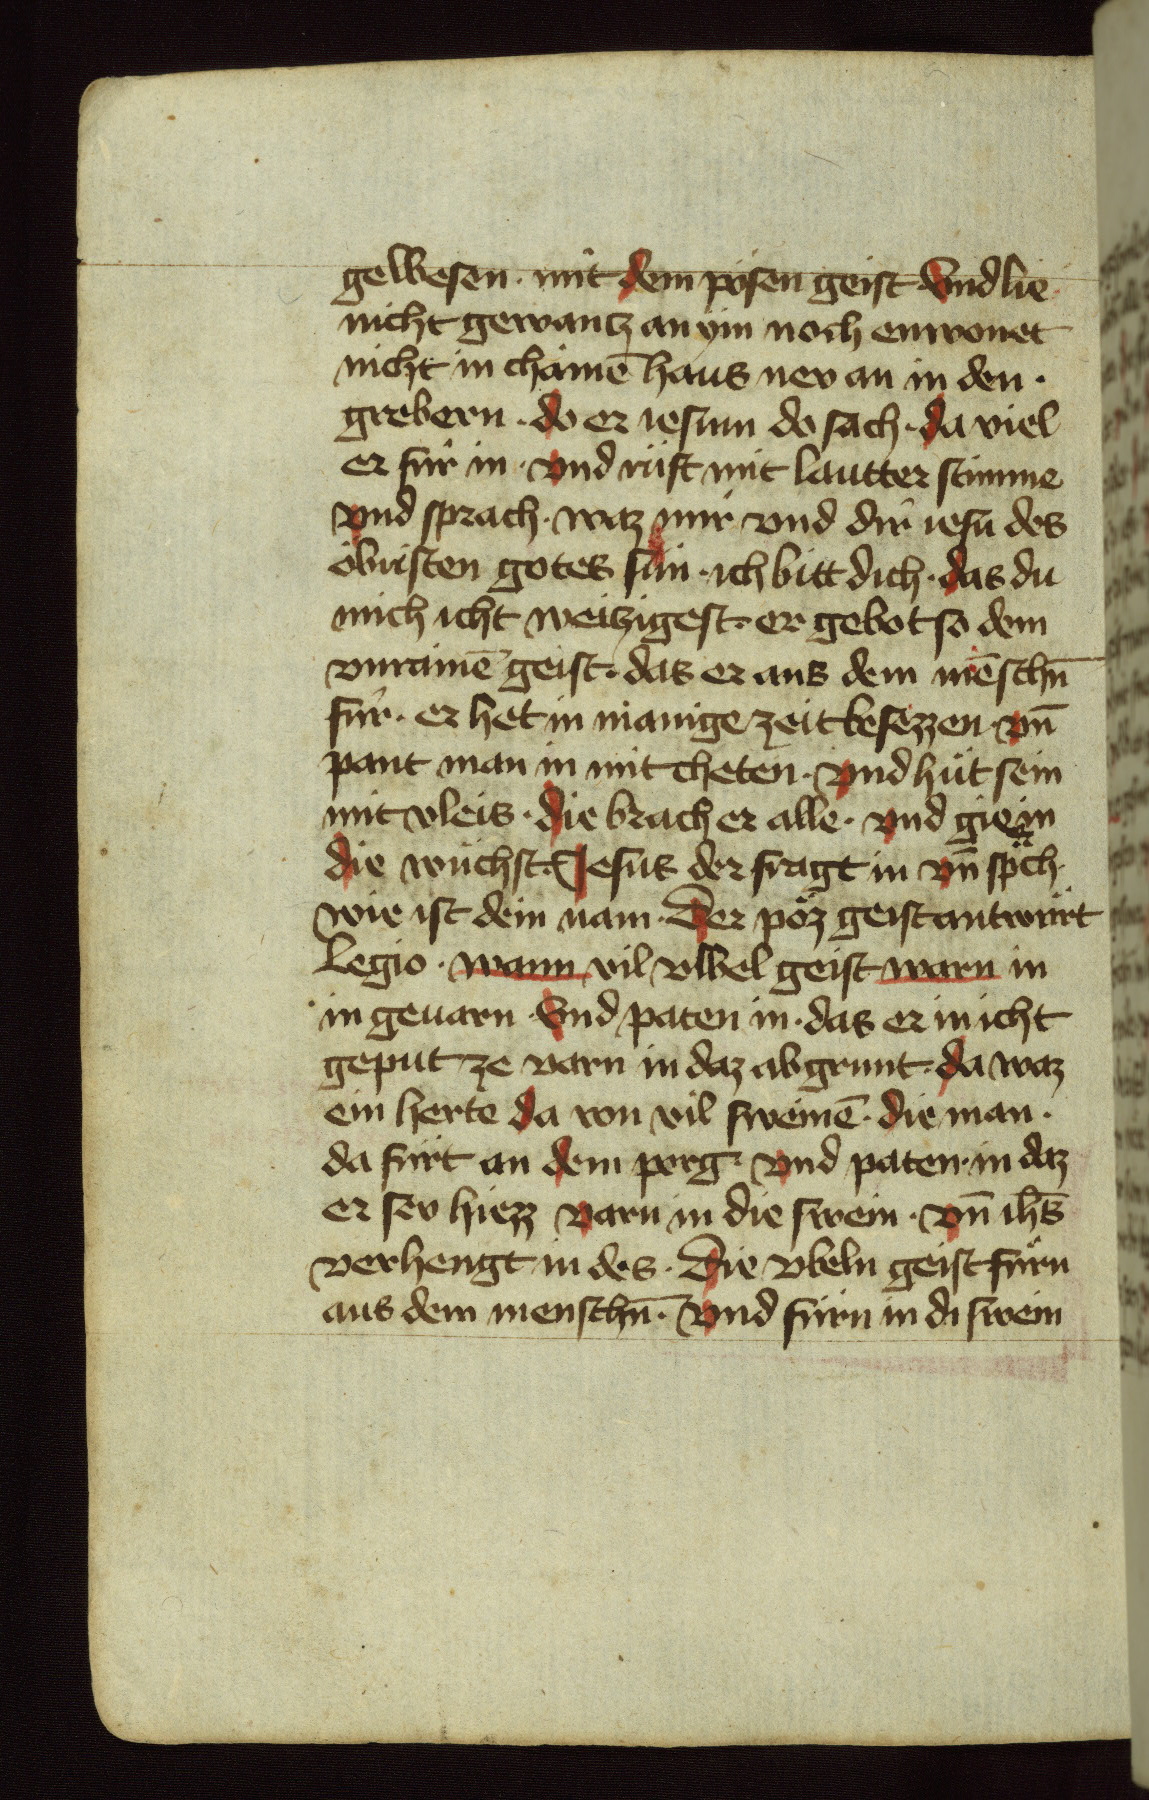 gelbesen · mit dem pösen geist · Vnd lie
nicht gewantz an ym noch enwonet
nicht in chäinē haus nev an in den ·
grebern · do er iesum do sach · da viel
er für in · vnd rüft mit lautter stimme
vnd sprach · waz mir vnd dir iesu des
öbristen gotes sün · ich bitt dich · das du
mich icht weitzigest · er gebot so dem
vnrainē geist · das er aus dem mēschn̄
für · er het in manige zeit besezzen · vn̄
pant man in mit cheten · vnd hüt sein
mit vleis · die brach er alle · vnd gie in
die wüchst · Jesus der fragt in vn̄ spͣch ·
wie ist dein nam · Der pöz geist antwürt
Legio · wann vil vlbel geist warn in
in geuarn · Vnd paten in · das er in icht
geput ze varn in daz abgrunt · da waz
ein herte da von vil sweinē · die man ·
da fürt an dem perg · vnd paten in daz
er sev hiezz varn in die swein · vn̄ ih̄s
verhengt in des · Die vbeln geist fürn
aus dem menschn̄ · vnd fürn in di swein